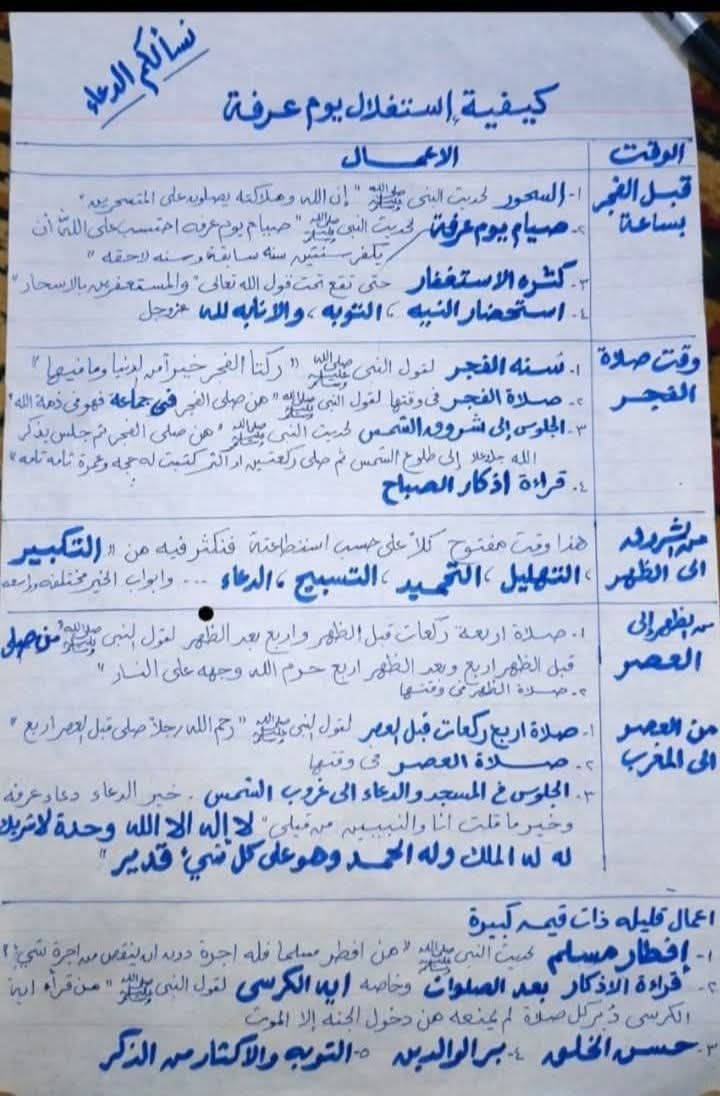 نسألكم الدعاء
كيفية إستغلال يوم عرفة
الوقت
الاعمال
قبل الفجر بساعة
١- السحور لحديث النبي ﷺ "إن الله وملائكته يصلون على المتسحرين"
٢- صيام يوم عرفة لحديث النبي ﷺ "صيام يوم عرفه احتسب على الله أن
يكفر سنتين سنه سابقة وسنه لاحقه"
٣- كثره الاستغفار حتى تقع تحت قول الله تعالى "والمستغفرين بالاسحار"
٤- استحضار النيه ، التوبه ، والانابه لله عزوجل
وقت صلاة الفجر
١- سنه الفجر لقول النبي ﷺ "ركعتا الفجر خير من الدنيا وما فيها"
٢- صلاة الفجر في وقتها لقول النبي ﷺ "من صلى الفجر في جماعة فهو في ذمة الله"
٣- الجلوس إلى شروق الشمس لحديث النبي ﷺ "من صلى الفجر ثم جلس يذكر
الله جل وعلا إلى طلوع الشمس ثم صلى ركعتين او اكثر كتبت له حجه وعمرة تامه تامه"
٤- قراءة اذكار الصباح
من الشروق الى الظهر
هذا وقت مفتوح كلاً على حسب استطاعتة فنكثر فيه من "التكبير
، التهليل ، التحميد ، التسبيح ، الدعاء ... وابواب الخير مختلفه واسعه
من الظهر إلى العصر
١- صلاة اربعة ركعات قبل الظهر واربع بعد الظهر لقول النبي ﷺ "من صلى
قبل الظهر اربع وبعد الظهر اربع حرم الله وجهه على النار"
٢- صلاة الظهر في وقتها
من العصر الى المغرب
١- صلاة اربع ركعات قبل العصر لقول النبي ﷺ "رحم الله رجلاً صلى قبل العصر اربع"
٢- صلاة العصر في وقتها
٣- الجلوس في المسجد والدعاء الى غروب الشمس . خير الدعاء دعاء عرفه
وخير ما قلت انا والنبيين من قبلي "لا إله الا الله وحدة لاشريك
له له الملك وله الحمد وهو على كل شيء قدير"
اعمال قليله ذات قيمه كبيرة
١- إفطار مسلم لحديث النبي ﷺ "من افطر مسلما فله اجرة دون ان ينقص من اجرة شيء"
٢- قراءة الاذكار بعد الصلوات وخاصه ايه الكرسي لقول النبي ﷺ "من قرأ اية
الكرسي دُبر كل صلاة لم يمنعه من دخول الجنه إلا الموت
٣- حسن الخلق ٤- بر الوالدين ٥- التوبه والاكثار من الذكر